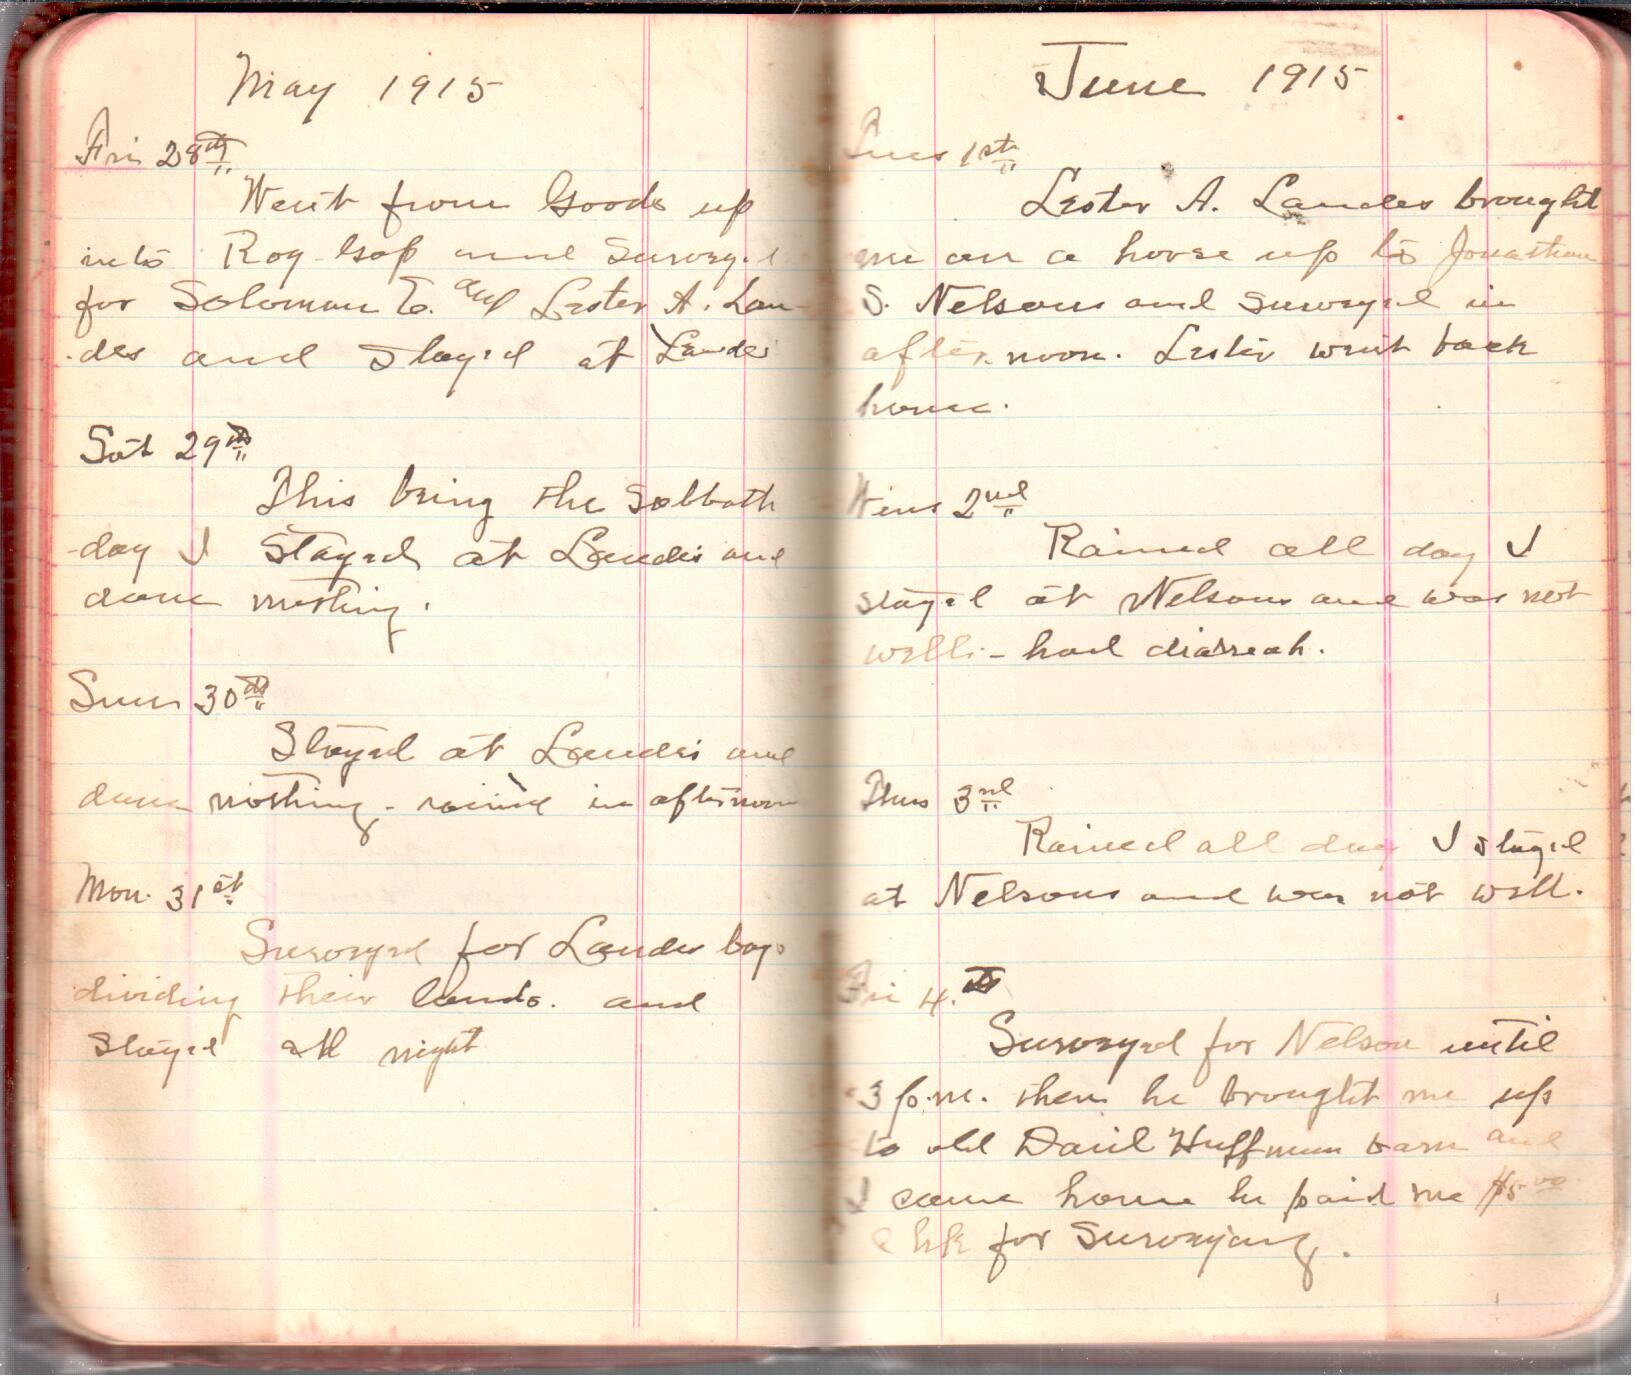 May 1915
Fri 28th
Went from Goods up
into Roy Gap and Surveyed
for Soloman E. and Lester A. Lan-
des and stayed at Landes
Sat 29th
This being the Sabbath
day I stayed at Landes and
done nothing.
Sun 30th
Stayed at Landes and
done nothing - rained in afternoon
Mon. 31st
Surveyed for Landes boys
dividing their lands. and
stayed all night
June 1915
Tues 1st
Lester A. Landes brought
me on a horse up to Jonathan
S. Nelsons and surveyed in
afternoon. Lester went back
home.
Wens 2nd
Rained all day I
stayed at Nelsons and was not
well - had diarreah.
Thus 3rd
Rained all day I stayed
at Nelsons and was not well.
Fri 4.th
Surveyed for Nelson until
3 p.m. then he brought me up
to old Danil Huffman barn and
I came home he paid me $5.00
for Surveying.